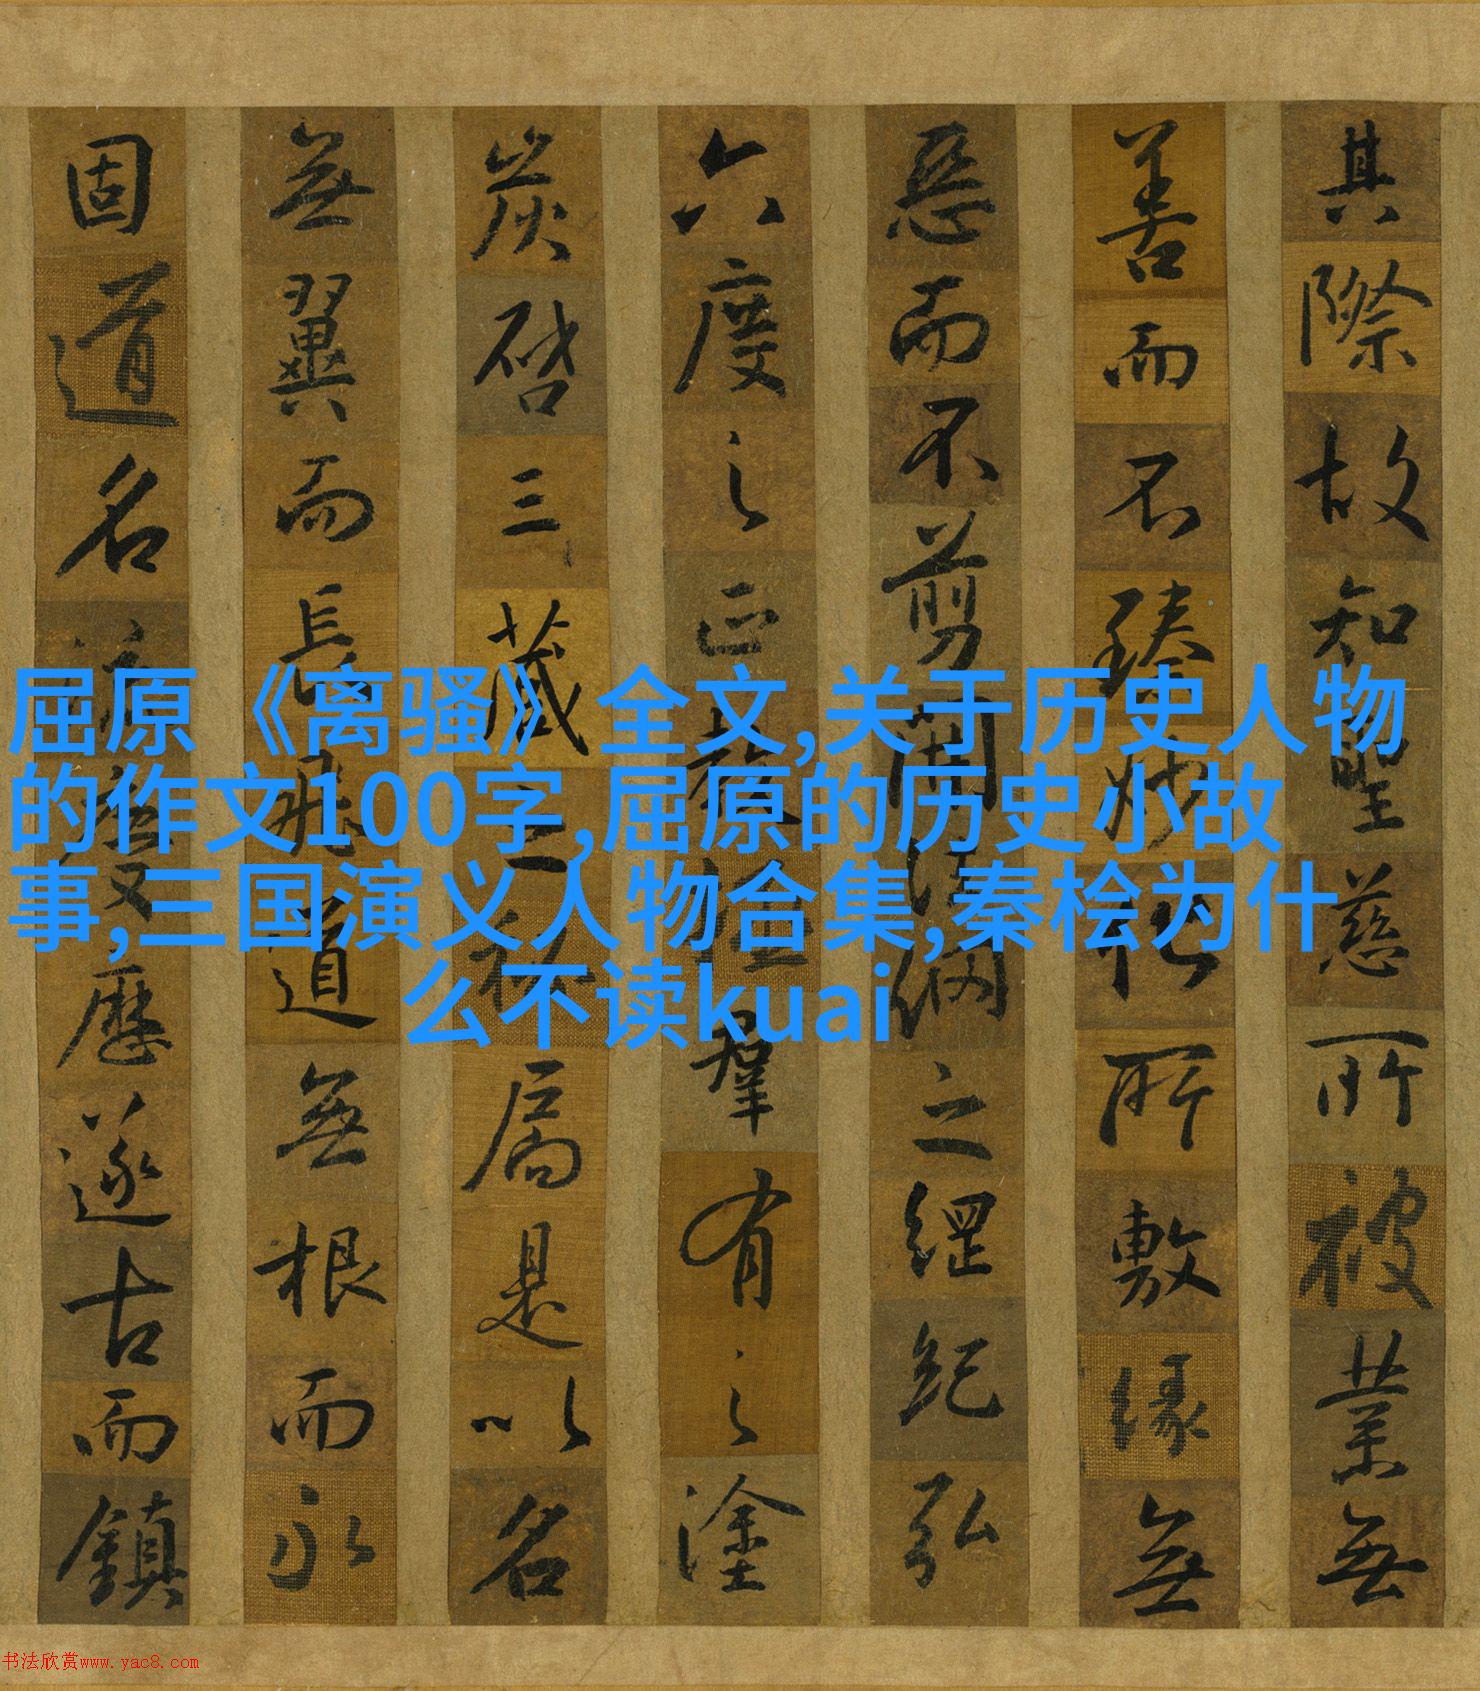 屈原《离骚》全文,关于历史人物
的作文100字,屈原的历史小故
事,三国演义人物合集,秦桧为什
么不读kuai
其際故知聖慈所被業無
善而不臻妙悟所敷緣無
惡而不剪開法網之綱紀弘
六度之正教拯羣有之塗
炭啓三藏之秘扃是以名
無翼而長飛道無根而永
固道名流慶歷遂古而鎮
书法欣赏www.yac8.com